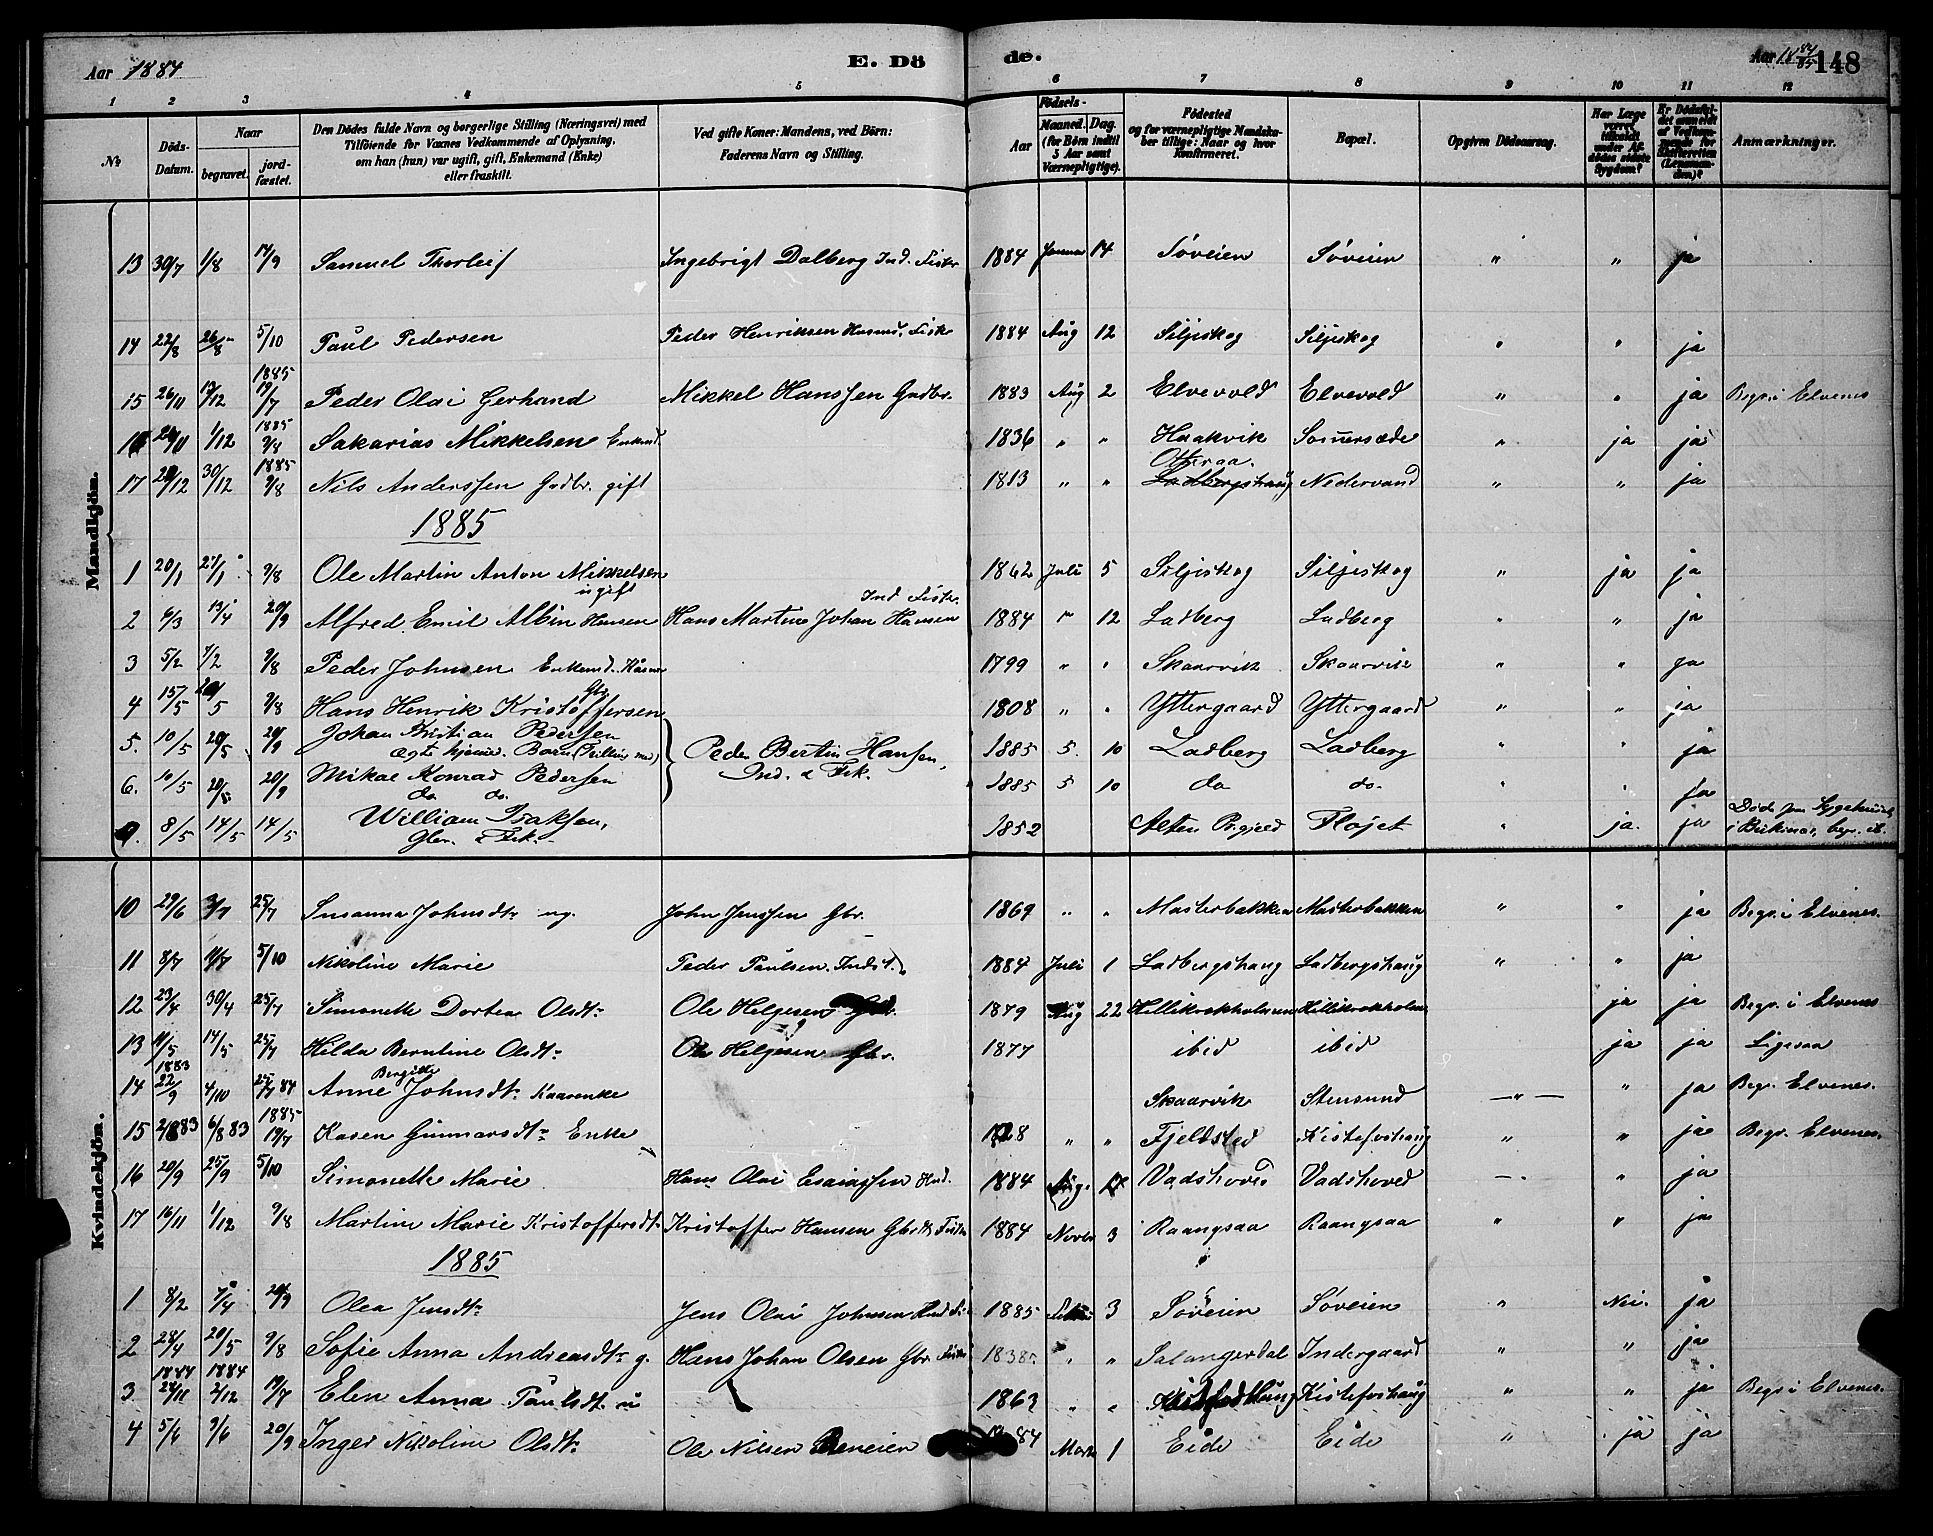 Aar 1884 E. Dö de. Aar 1884/85 148
1 2 3 4 5 6 7 8 9 10 11 12
No. Döds-Datum. Naar begravet. jordfæstet. Den Dödes fulde Navn og borgerlige Stilling (Næringsvei) med Tilföiende for Voxnes Vedkommende af Oplysning, om han (hun) var ugift, gift, Enkemand (Enke) eller fraskilt. Ved gifte Koner: Mandens, ved Börn: Faderens Navn og Stilling. Födsels- Aar Maaned. Dag. (for Börn indtil 5 Aar samt Værnepligtige). Födested og for værnepligtige Mandskaber tillige: Naar og hvor Konfirmeret. Bopæl. Opgiven Dödsaarsag. Har Læge været tilkaldt under Afdödes sidste Sygdom? Er Dödsfaldet anmeldt af Vedkommende for Skifteretten (Lensmanden)? Anmærkninger.
Mandkjön.
13 30/7 1/8 14/9 Samuel Thorleif Ingebrigt Dalberg Ind. Fisker 1884 Januar 14 Söveien Söveien " " ja
14 22/8 26/8 5/10 Paul Pedersen Peder Henriksen Husmd. Fisk. 1884 Aug 12 Siljeskog Siljeskog " " ja
1885
15 26/11 12/12 19/7 Peder Olai Gerhand Mikkel Hanssen Gadbr. 1883 Aug 2 Elvevold Elvevold " " ja Begr. i Elvenes
1885
16 /11 1/12 9/8 Sakarias Mikkelsen Enkmd. 1836 " " Haakvik Sommersæde " ja ja
1885 Otteraa.
17 /12 30/12 9/8 Nils Anderssen Gadbr. gift 1813 " " Ladbergshaug Nedervand " " ja
1885
1 20/1 27/1 9/8 Ole Martin Anton Mikkelsen 1862 Juli 5 Siljeskog Siljeskog " ja ja
ugift Ind Fisker.
2 6/3 13/4 20/9 Alfred Emil Albin Hansen Hans Martin Johan Hansen 1884 " 12 Ladberg Ladberg " " ja
3 5/2 7/2 9/8 Peder Johnsen Enkemd. 1799 " " Skaarvik Skaarvik " " ja
Gbr
4 15/5 20/5 9/8 Hans Henrik Kristoffersen 1808 " " Yttergaard Yttergaard " " ja
5. 10/5 20/5 20/9 Johan Kristian Pedersen Peder Bertin Hansen, 1885 5. 10 Ladberg Ladberg " " ja
Ægte hjemmed. Barn (Tvilling med) Ind. & Fsk.
6. 10/5 20/5 20/9 Mikal Konrad Pedersen 1885 5 10 do do. " " ja
do do.
8/5 14/5 14/5 William Isaksen, 1852 Alten Prgjeld Fløjet " ja. ja Døde paa Sygehuset
Gbr. & Fsk. i begr. d.
Kvindekjön.
10 29/6 3/7 25/7 Susanna Johnsdtr ug. John Jenssen Gbr. 1869 " " Masterbakken Masterbakken " " ja Begr. i Elvenes.
11 8/7 11/7 5/10 Nikoline Marie Peder Paulsen Indst. 1884 Juli 1 Ladbergshaug Ladbergshaug " " ja
12 23/4 30/4 25/7 Simonette Dortea Olsdtr Ole Helgesen Gbr. 1879 Aug 22 Hillikrokholmen Hillikrokholmen ja ja Begr. i Elvenes
13 11/5 14/5 25/7 Hilda Berntine Olsdtr Ole Helgesen Gbr. 1877 ibid ibid ja ja Ligesaa
1883 Bergitte
14 22/9 4/10 25/7 84 Anne Johnsdtr Kaarenke Skaarvik Stensund — " — " ja Begr. Elvenes.
1885
15 2/8 83 6/8 83 19/7 Karen Gunnarsdtr Enke " " Fjeldsted Kistefoshaug " " ja Begr. Elvenes.
16 20/9 25/9 5/10 Simonette Marie Hans Olai Esaiassen Ind. 1884 Aug. Vadshoved Vadshoved —. " ja
17 16/11 1/12 9/8 Martine Marie Kristoffersdtr Kristoffer Hansen Gbr. & Fisker 1884 Novbr 3 Raangsaa Raangsaa " " ja
1885
1 8/2 7/4 20/9 Olea Jensdtr Jens Olai Johnsen Ind Fi 1885 Febr 3 Söveien Söveien " Nei. ja
2 28/4 20/5 9/8 Sofie Anna Andreasdtr g. Hans Johan Olsen Gbr. Fisker 1838 " " Salangerdal Indergaard " " ja
1884 1884
3 24/11 2/12 19/7 Elen Anna Paulsdtr u 1863 " " Kistefoshaug Kistefoshaug " " ja Begr. i Elvenes.
4 5/6 9/6 20/9 Inger Nikoline Olsdtr Ole Nilsen 1884 Marts 1 Eide Eide " ja ja